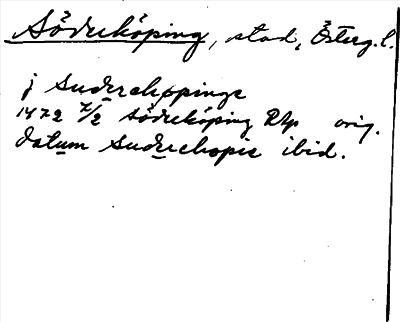 Söderköping, stad, Österg.l.
j Suderchøppinge
1472 7/2 Söderköping RAp orig.
datum Suderchopie ibid.